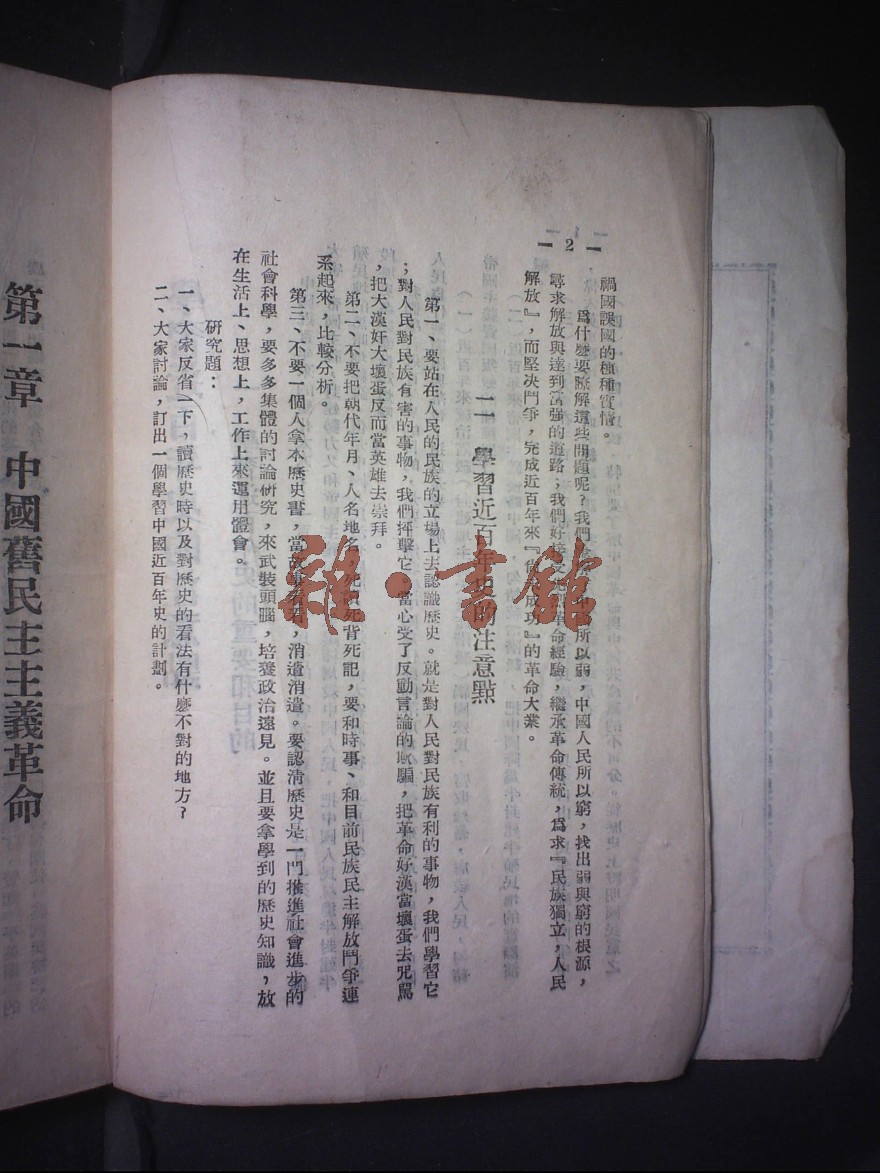 2
禍國誤國的種種實情。
爲什麼要瞭解這些問題呢？我們所以弱，中國人民所以窮，找出弱與窮的根源，
尋求解放與達到富強的道路；我們好接受革命經驗，繼承革命傳統，爲求『民族獨立，人民
解放』，而堅决鬥爭，完成近百年來『成功』的革命大業。
二 學習近百年史的注意點
第一、要站在人民的民族的立場上去認識歷史。就是對人民對民族有利的事物，我們學習它
；對人民對民族有害的事物，我們抨擊它，當心受了反動言論的欺騙，把革命好漢當壞蛋去咒駡
，把大漢奸大壞蛋反而當英雄去崇拜。
第二、不要把朝代年月、人名地名死背死記，要和時事、和目前民族民主解放鬥爭連
系起來，比較分析。
第三、不要一個人拿本歷史書，當故事看看，消遣消遣。要認清歷史是一門推進社會進步的
社會科學，要多多集體的討論研究，來武裝頭腦，培養政治遠見。並且要拿學到的歷史知識，放
在生活上、思想上，工作上來運用體會。
研究題：
一、大家反省一下，讀歷史時以及對歷史的看法有什麼不對的地方？
二、大家討論，訂出一個學習中國近百年史的計劃。
第一章 中國舊民主主義革命
雜·書館